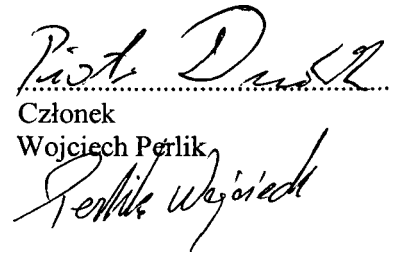 Piotr
Członek
Wojciech Perlik
Perlik Wojciech